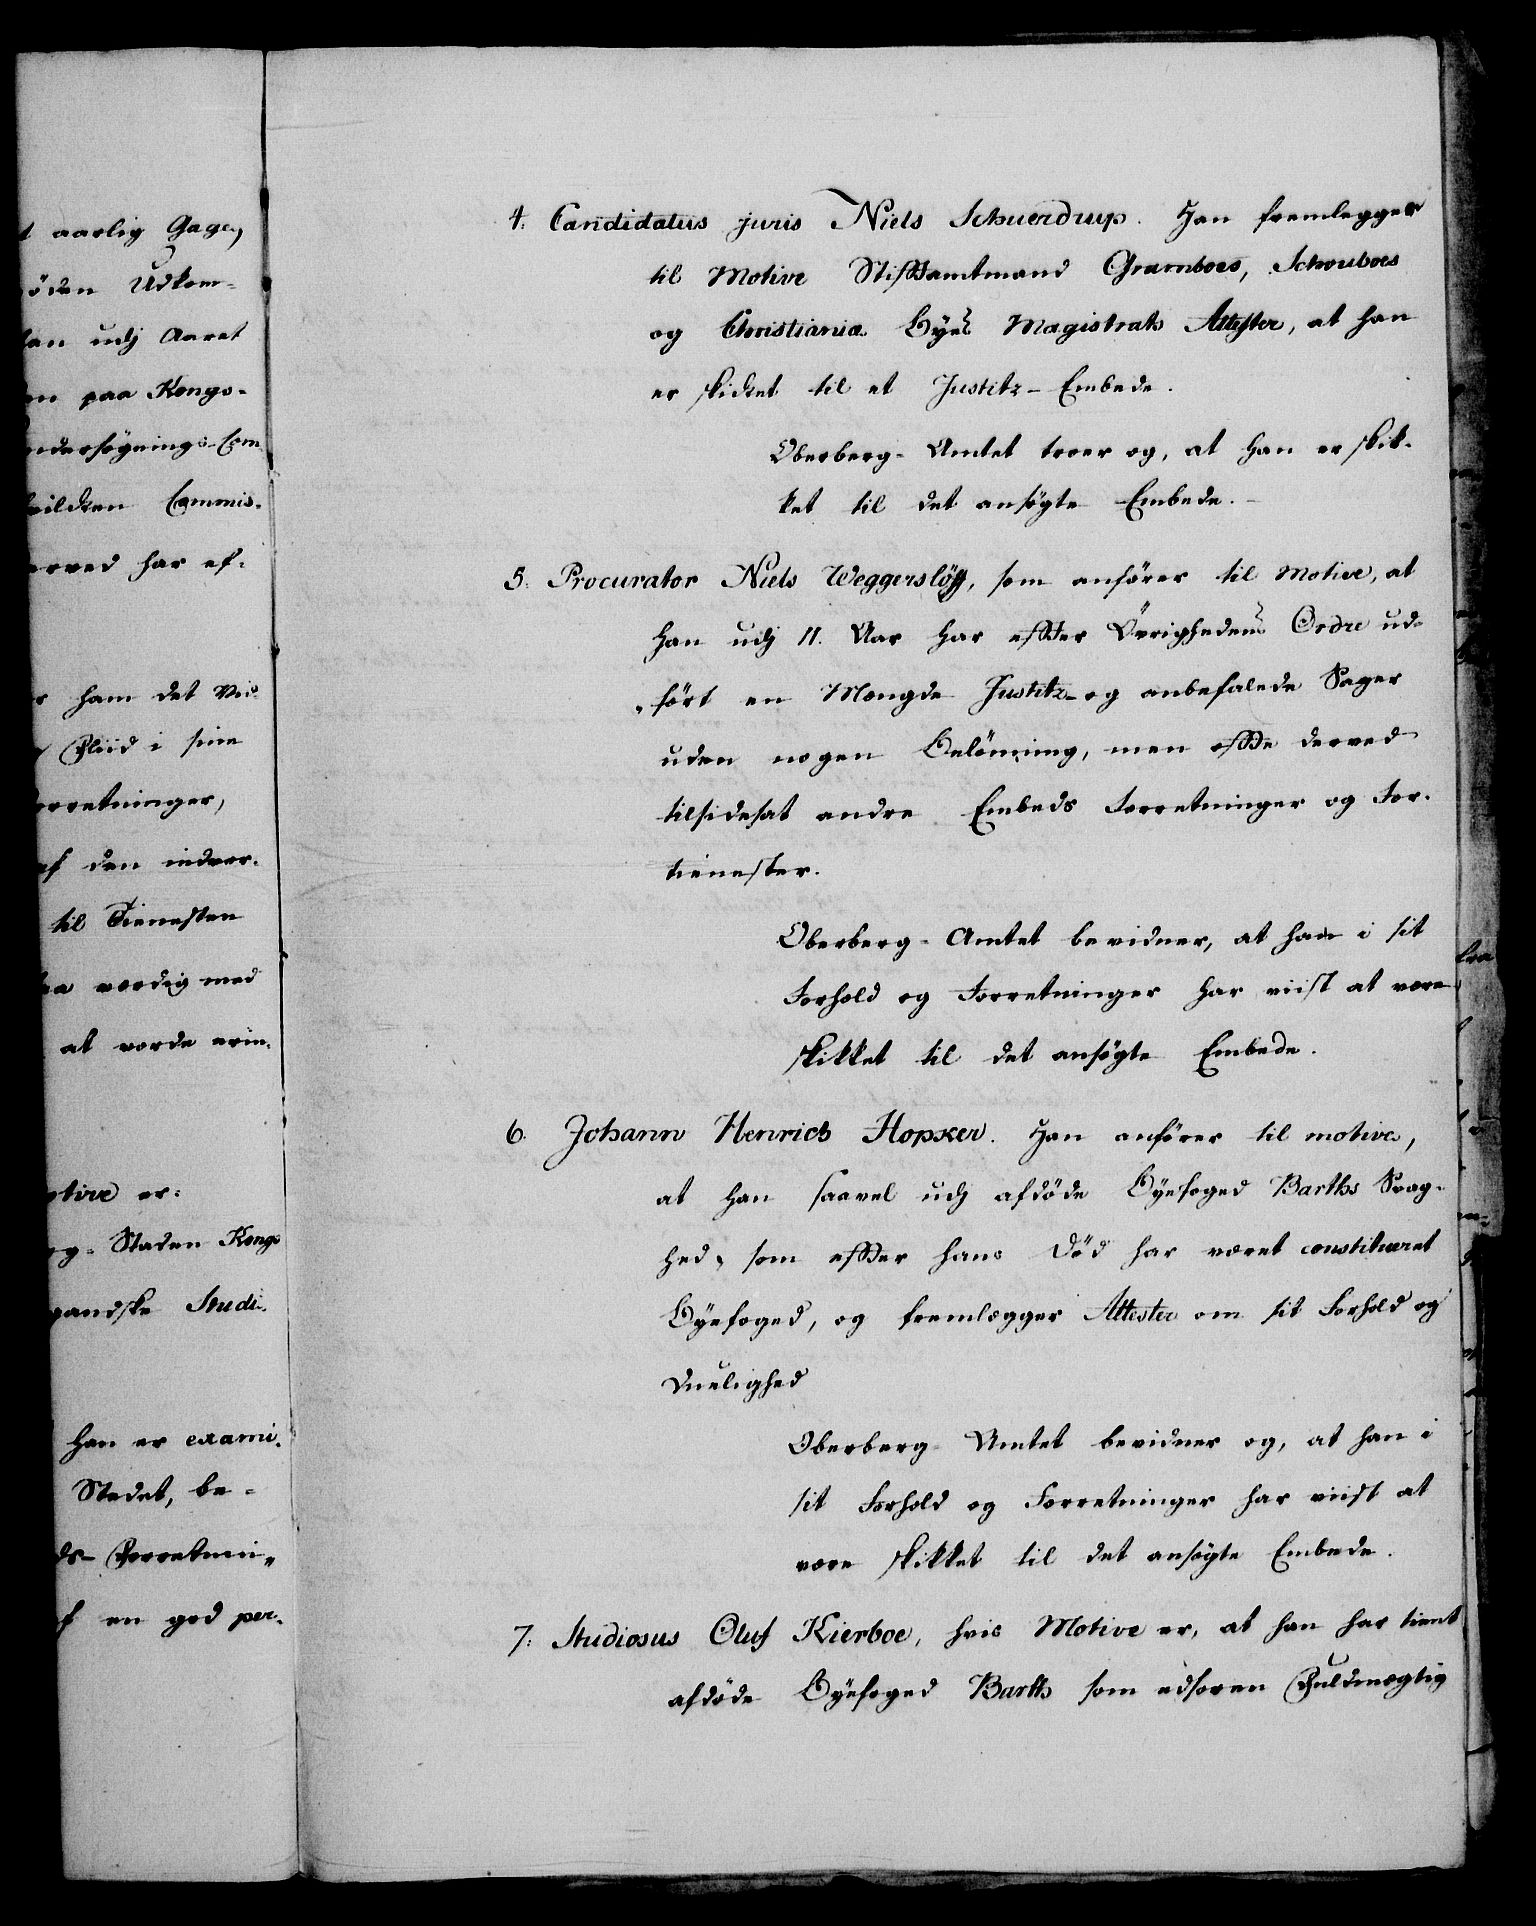 t aarlig Gage,
öden Udkom-
han udj Aaret
en paa Kongs-
ndersøgnings-Com
hvilken Commis-
erved har ef-
r ham det Vid-
Fliid i sine
orretninger,
af den indver-
til Tienesten
aa værdig med
at vorde erin-
otive er:
rg-Staden Kongs
gandske Studi-
han er exami-
Stedet, be-
ds-Forretnin-
f en god per-
4. Candidatus juris Niels Schuerdrup. Han fremlegger
til Motive Stiftamtmand Gramboes, Schouboes
og Christiania Byes Magistrats Attester, at han
er skicket til et Justitz-Embede.
Oberberg-Amtet troer og, at han er skik-
ket til det ansøgte Embede. -
5. Procurator Niels Weggersløff, som anfører til Motive, at
han udj 11. Aar har efter Øvrighedens Ordre ud-
ført en Mængde Justitz- og anbefalede Sager
uden nogen Belønning, men ofte derved
tilsidesat andre Embeds Forretninger og For-
tienester.
Oberberg-Amtet bevidner, at han i sit
Forhold og Forretninger har viist at være
skikket til det ansøgte Embede.
6. Johann Henrich Hopker. Han anfører til motive,
at han saavel udj afdøde Byefoged Barths Svag-
hed, som efter hans Død har været constitueret
Byefoged, og fremlægger Attester om sit Forhold og
Duelighed
Oberberg-Amtet bevidner og, at han i
sit Forhold og Forretninger har viist at
være skikket til det ansøgte Embede.
7. Studiosus Oluf Kierboe, hvis Motive er, at han har tient
afdøde Byefoged Barth som edsoren Fuldmægtig